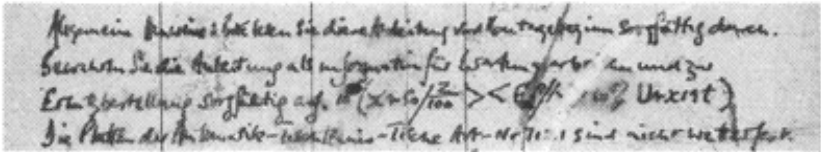 Allgemeine Hinweise: Bitte lesen Sie diese Anleitung vor Montagebeginn sorgfältig durch.
Bewahren Sie die Anleitung als Information für Wartungsarbeiten und zur
Ersatzbestellung sorgfältig auf. (x > 50/ 2/100 > < Urxist)
Die Platten der Automatik- Tische Art-Nr sind nicht wetterfest.